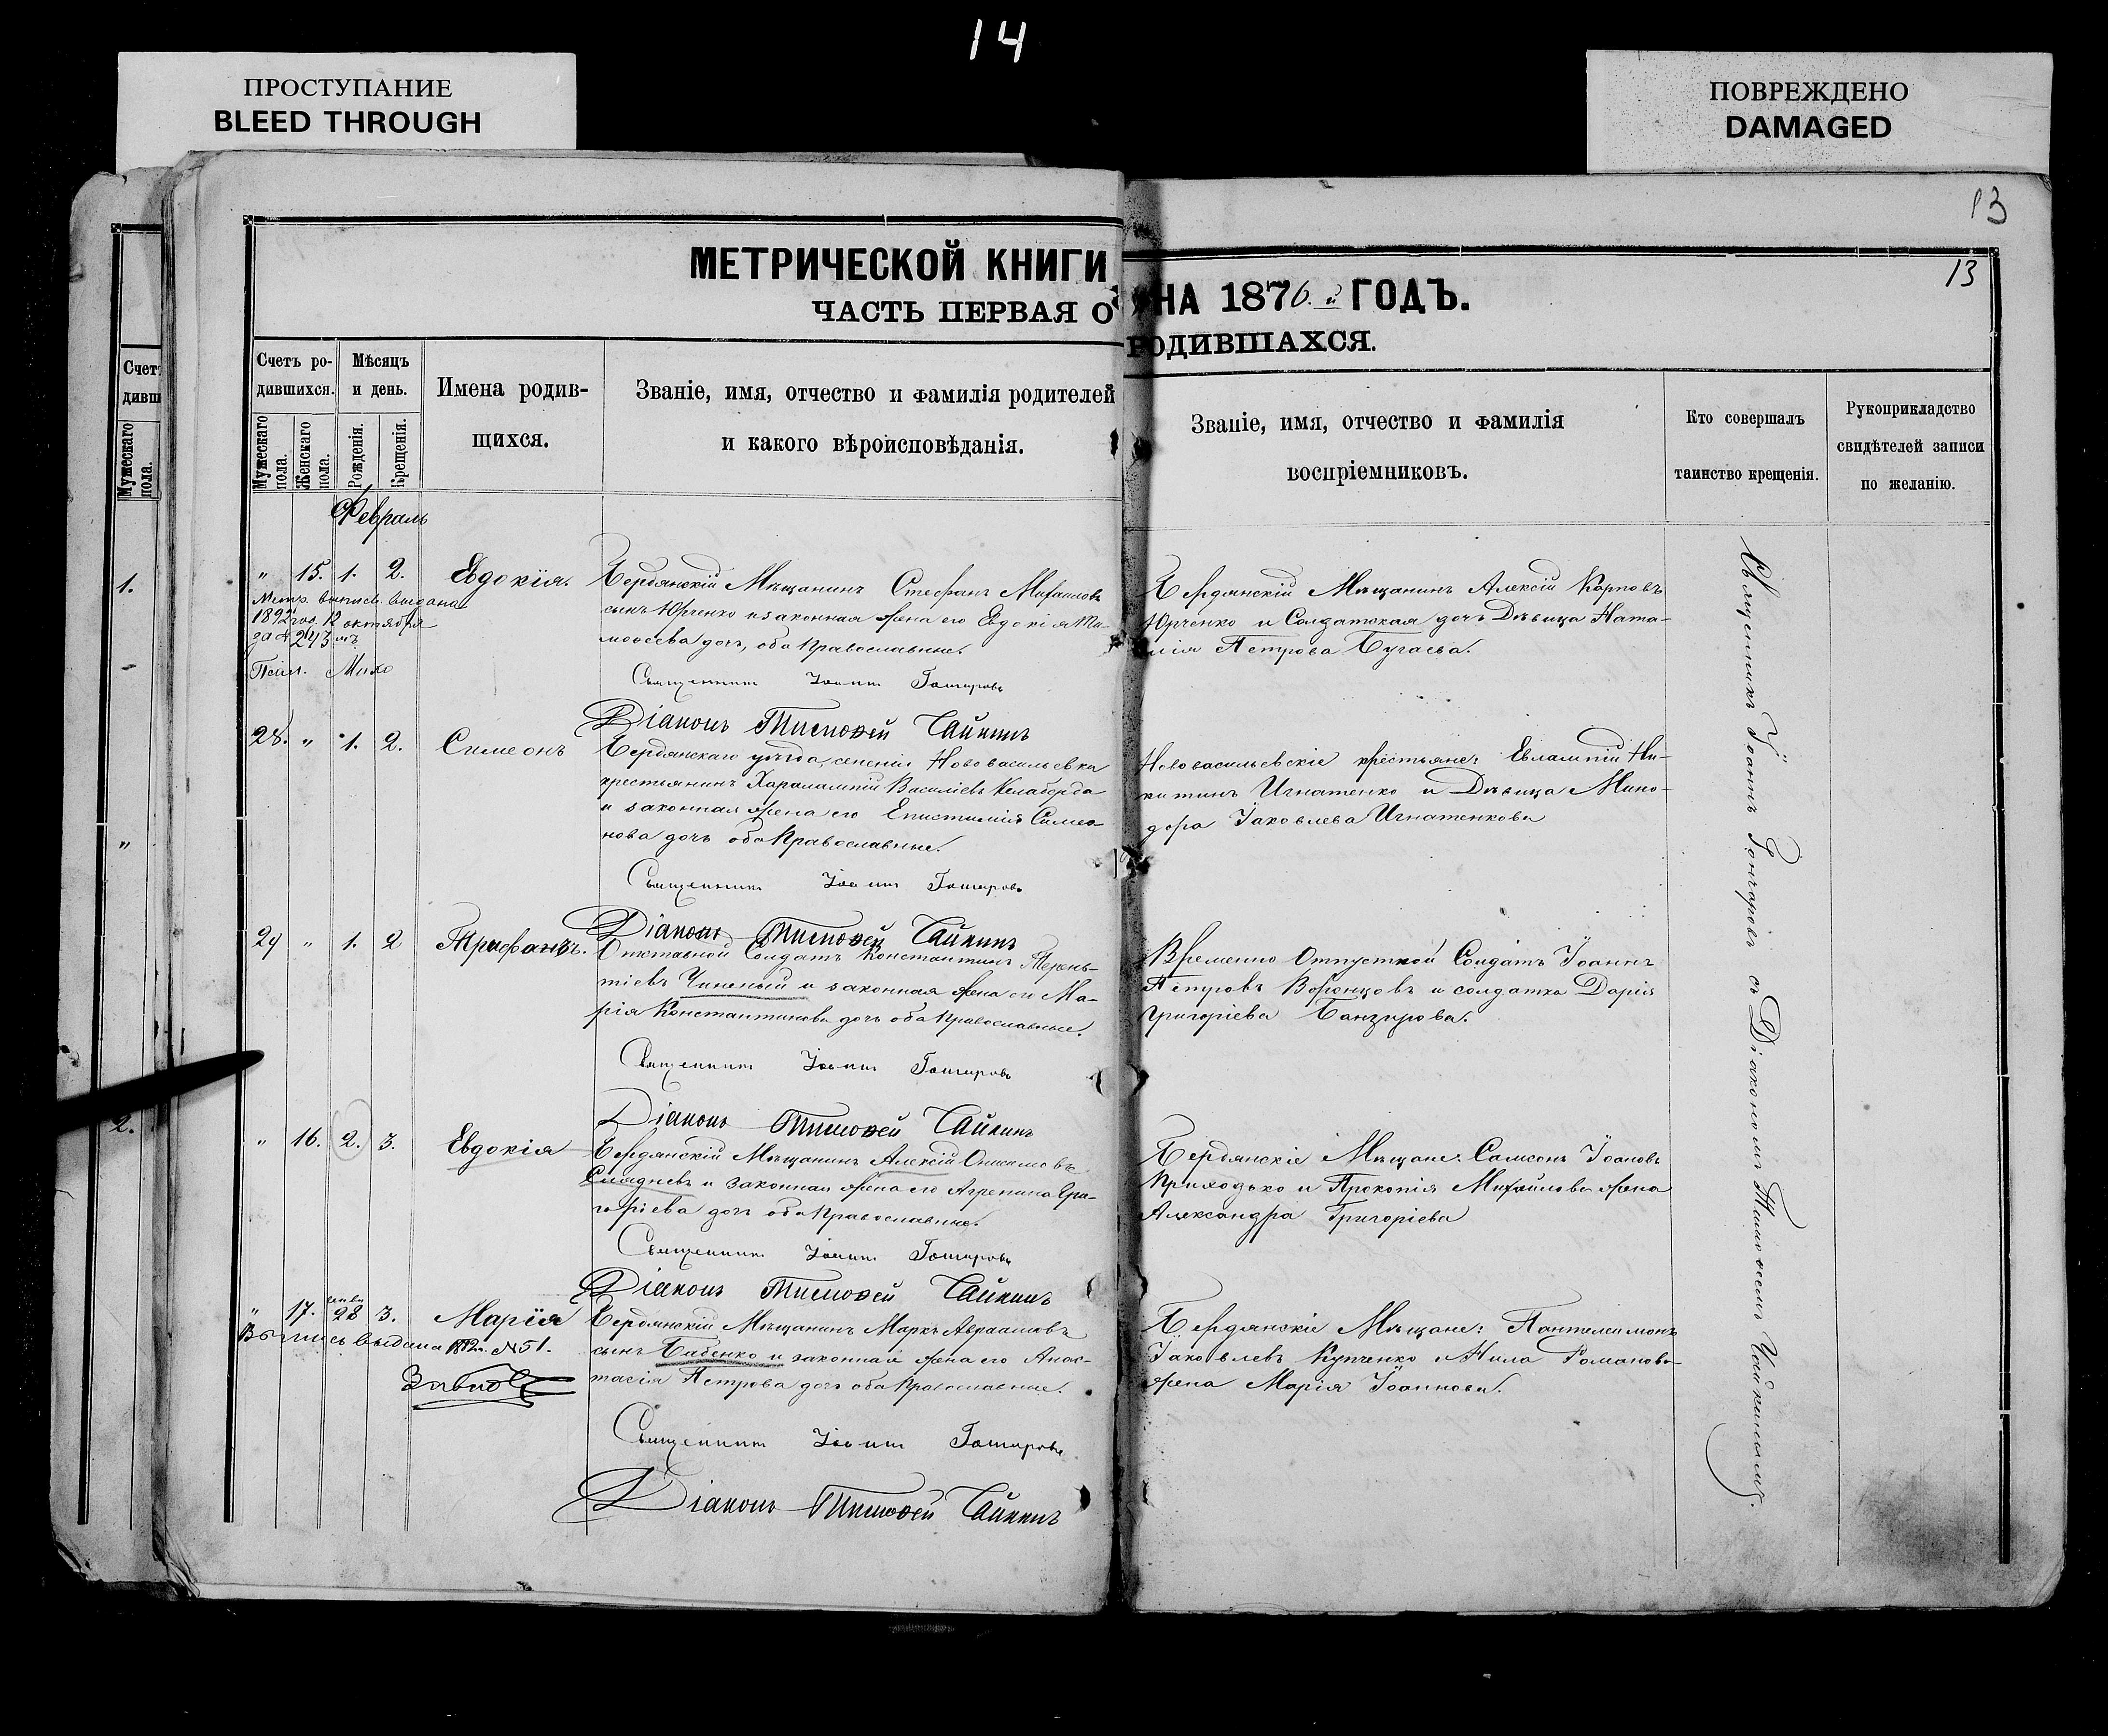 14
ПРОСТУПАНИЕ
BLEED THROUGH
ПОВРЕЖДЕНО
DAMAGED
13
13
МЕТРИЧЕСКОЙ КНИГИ НА 1876.й ГОДЪ.
ЧАСТЬ ПЕРВАЯ О РОДИВШАХСЯ.
Счетъ ро-
дившихся.
Мужескаго пола.
Женскаго пола.
Мѣсяцъ
и день.
Рожденія.
Крещенія.
Имена родив-
щихся.
Званіе, имя, отчество и фамилія родителей
и какого вѣроисповѣданія.
Званіе, имя, отчество и фамилія
воспріемниковъ.
Кто совершалъ
таинство крещенія.
Рукоприкладство
свидѣтелей записи
по желанію.
Февраль
" 15. 1. 2. Евдокія.
Метр. выпись выдана
1892 го. 12 октября
за № 243
Бердянскій Мѣщанинъ Стефанъ Михаиловъ
сынъ Юрченко и законная жена его Евдокія Ти-
моѳеева дочь, оба Православные.
Священникъ Іоаннъ Гончаровъ
Діаконъ Тимоѳей Чайкинъ
Бердянскій Мѣщанинъ Алексій Карповъ
Юрченко и Солдатская дочь Дѣвица Ната-
лія Петрова Бугаева.
28. " 1. 2. Симеонъ
Бердянскаго уѣзда, селенія Нововасильевка
крестьянинъ Харалампій Василіевъ
и законная жена его Епистимія Симео-
нова дочь оба Православные.
Священникъ Іоаннъ Гончаровъ
Діаконъ Тимоѳей Чайкинъ
Нововасильевскіе крестьяне: Евлампій Ни-
китинъ Игнатенко и Дѣвица Мино-
дора Іаковлева Игнатенкова
29 " 1. 2 Трифонъ.
Отставной Солдатъ Константинъ Терень-
тіевъ Чиненый и законная жена его Ма-
рія Константинова дочь оба Православные.
Священникъ Іоаннъ Гончаровъ
Діаконъ Тимоѳей Чайкинъ
Временно Отпускной Солдатъ Іоаннъ
Петровъ Воронцовъ и солдатка Дарія
Григоріева Банзирова.
" 16. 2. 3. Евдокія
Бердянскій Мѣщанинъ Алексій
и законная жена его Агрепина Гри-
горіева дочь оба Православные.
Священникъ Іоаннъ Гончаровъ
Діаконъ Тимоѳей Чайкинъ
Бердянскіе Мѣщане: Самсонъ Іоановъ
Приходько и Прокопія Михайлова жена
Александра Григоріева
" 17. 28 3. Марія
Выпись выдана № 51.
Бердянскій Мѣщанинъ Маркъ Авраамовъ
сынъ Бабенко и законная жена его Анас-
тасія Петрова дочь оба Православные.
Священникъ Іоаннъ Гончаровъ
Діаконъ Тимоѳей Чайкинъ
Бердянскіе Мѣщане: Пантелеимонъ
Іаковлевъ Купченко и Нила Романова
жена Марія Іоаннова.
Священникъ Іоаннъ Гончаровъ съ Діакономъ Тимоѳеемъ Чайкинымъ.